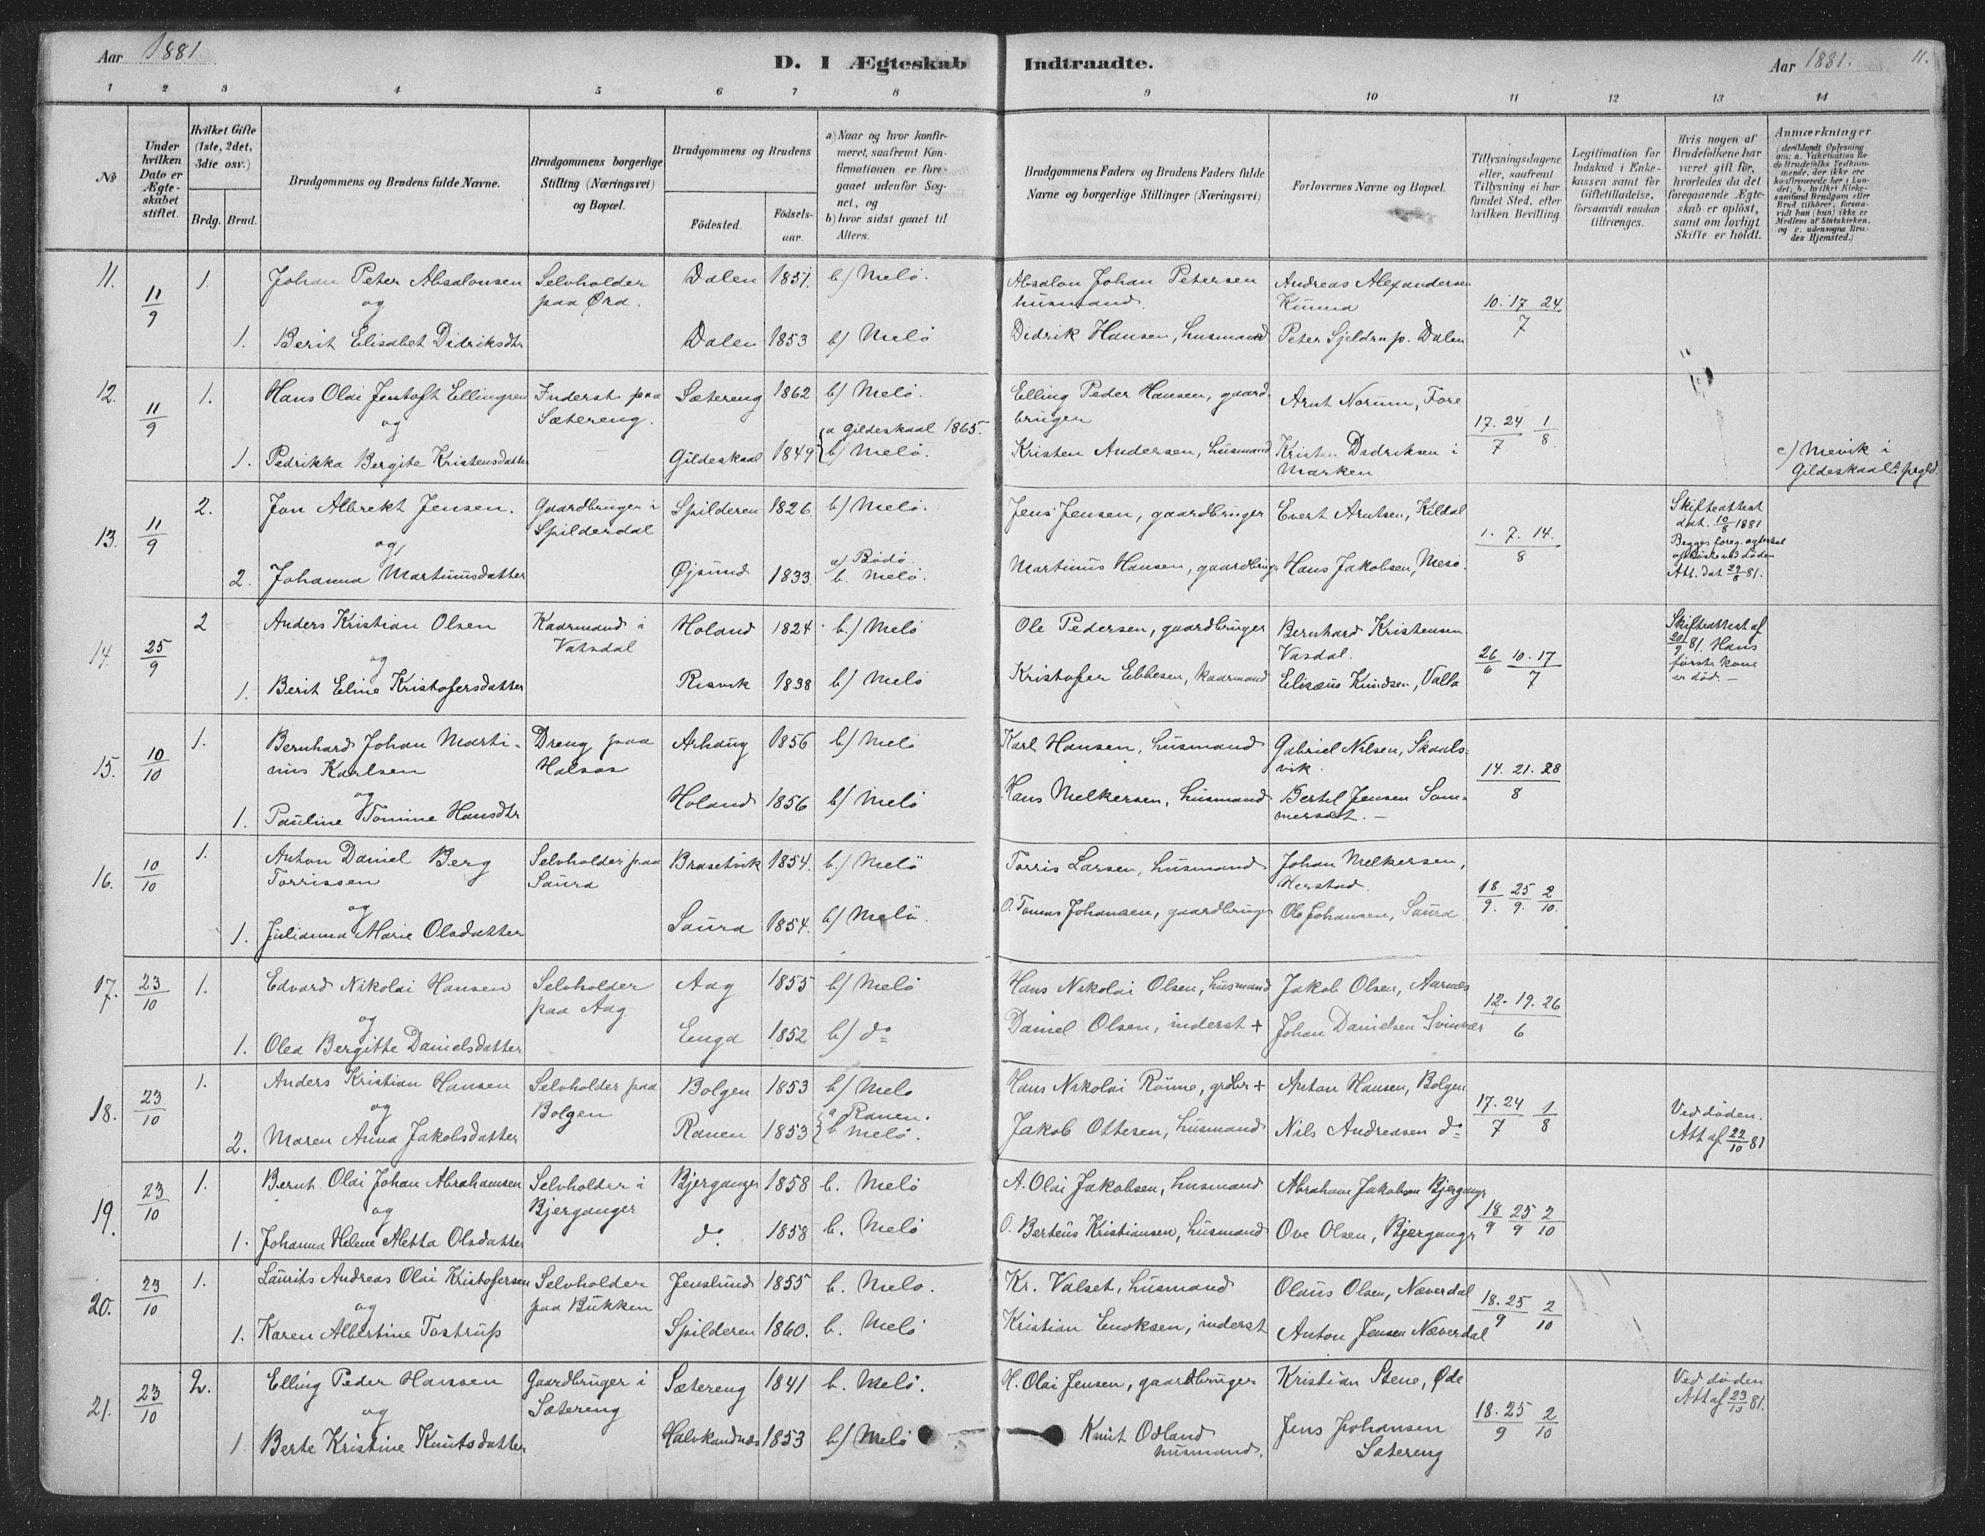 Aar 1881. D. I Ægteskab Indtraadte. Aar 1881. 11.
1 2 3 4 5 6 7 8 9 10 11 12 13 14
№
Under hvilken Dato er Ægteskabet stiftet.
Hvilket Gifte (1ste, 2det, 3die osv.)
Brdg. Brud.
Brudgommens og Brudens fulde Navne.
Brudgommens borgerlige Stilling (Næringsvei) og Bopæl.
Brudgommens og Brudens
Födested. Födsels-aar.
a) Naar og hvor konfirmeret, saafremt Konfirmationen er foregaaet udenfor Sognet, og
b) hvor sidst gaaet til Alters.
Brudgommens Faders og Brudens Faders fulde Navne og borgerlige Stillinger (Næringsvei)
Forlovernes Navne og Bopæl.
Tillysningsdagene eller, saafremt Tillysning ei har fundet Sted, efter hvilken Bevilling.
Legitimation for Indskud i Enkekassen samt for Giftetilladelse, forsaavidt saadan tiltrænges.
Hvis nogen af Brudefolkene har været gift för, hvorledes da det foregaaende Ægteskab er oplöst, samt om lovligt Skifte er holdt.
Anmærkninger (deriblandt Oplysning om: a. Vaksination for de Brudefolks Vedkommende, der ikke ere konfirmerede her i Landet; b. hvilket Kirkesamfund Brudgom eller Brud tilhörer, forsaavidt han (hun) ikke er Medlem af Statskirken, og c. udensogns Brudes Hjemsted.)
11. 11/9 1. Johan Peter Absalonsen Selvholder Dalen 1851. b/ Melö. Absalon Johan Petersen Andreas Alexandersen
og paa Örd. husmand. Kunna 10. 17 24/7
1. Berit Elisabet Didriksdtr Dalen 1853 b/ Melö Didrik Hansen, husmand Peter Sjeldrup. Dalen
12. 11/9 1. Hans Olai Jentoft Ellingsen Inderst paa Sætereng 1862 b/ Melö. Elling Peder Hansen, gaard- Arnt Norum, Fore
og Sætereng. a Gildeskaal 1865. brugen 17. 24/7 1/8
1. Pedrikka Bergite Kristensdatter Gildeskaal 1849 b/ Melö. Kristen Andersen, husmand Kristen Didriksen i c) Mevik i
Marken Gildeskaals prgld.
13. 11/9 2. Jon Albrekt Jensen. Gaardbruger i Spilderen 1826 b/ Melö. Jens Jensen, gaardbruger Evert Arntsen, Kildal Skifteattest
og Spilderdal a) Bödö 1. 7. 14./8 dat. 10/8 1881
2. Johanna Martinusdatter Öjsund 1833. b. Melö. Martinus Hansen, gaardbruger Hans Jakobsen, Mesö. Att. dat 29/8 81.
14. 25/9 2 Anders Kristian Olsen Kaarmand i Holand 1824 b./ Melö Ole Pedersen, gaardbruger Bernhard Kristensen Skifteattest af
og Vatsdal Vasdal. 26/6 10. 17/7 20/9 81. Hans
1. Berit Eline Kristofersdatter Risvik 1838 b/ Melö Kristofer Ebbesen, kaarmand Elisæus Knudsen, Valla förste kone
er död. —
15. 10/10 1. Bernhard Johan Marti- Dreng paa Arhaug 1856 b/ Melö Karl Hansen, husmand Gabriel Nilsen, Skaals-
nus Karlsen Halsos vik. 14. 21. 28/8
og
1. Pauline Tomine Hansdtr Holand 1856 b/ Melö Hans Melkersen, husmand Bertel Jensen Som-
mersæt. —
16. 10/10 1. Anton Daniel Berg Selvholder paa Brasetvik 1854. b./ Melö Torris Larsen, husmand Johan Melkersen,
Torrissen Saura Herstad. 18/9. 25/9. 2/10.
og
1. Julianna Marie Olsdatter Saura 1854. b/ Melö. O. Tomas Johansen, gaardbruger Ole Johansen, Saura
17. 23/10 1. Edvard Nikolai Hansen Selvholder Aag 1855 b/ Melö Hans Nikolai Olsen, husmand Jakob Olsen, Aarnæs
og paa Aag 12. 19. 26/6
1. Olea Bergitte Danielsdatter Enga 1852 b/ do Daniel Olsen, inderst + Johan Danielsen Svinvær
18. 23/10 1. Anders Kristian Hansen Selvholder paa Bolgen 1853 b/ Melö Hans Nikolai Rönne, grdbr + Anton Hansen, Bolgen
og Bolgen a Ranen. 17. 24/7 1/8 Ved döden.
2. Maren Anna Jakobsdatter Ranen 1853 b Melö. Jakob Ottesen, husmand Nils Andreasen do Att af 22/10 81
19. 23/10 1. Bernt Olai Johan Abrahamsen Selvholder i Bjerganger 1858 b. Melö A. Olai Jakobsen, husmand Abraham Jakobsen Bjergangr
og Bjerganger 18/9 25/9 2/10
1. Johanna Helene Aletta Olsdatter do. 1858 b. Melö O. Berteus Kristiansen, husmand Ove Olsen, Bjergangr
20. 23/10 1. Laurits Andreas Olai Kristofersen Selvholder Jenslund 1855 b. Melö. Kr. Valset, husmand Olaus Olsen, Næverdal
og paa Bukken 18. 25/9 2/10
1. Karen Albertine Tostrup Spilderen 1860. b. Melö Kristian Enoksen, inderst Anton Jensen Næverdal
21. 23/10 2. Elling Peder Hansen Gaardbruger i Sætereng 1841 b. Melö. H. Olai Jensen, gaardbruger Kristian Stene, Öde Ved döden
og Sætereng 18. 25/9 2/10 Att af 23/10 81.
1. Berte Kristine Knutsdatter Halvkandnæs 1853 b/ Melö Knut Odland Jens Johansen
husmand. Sætereng